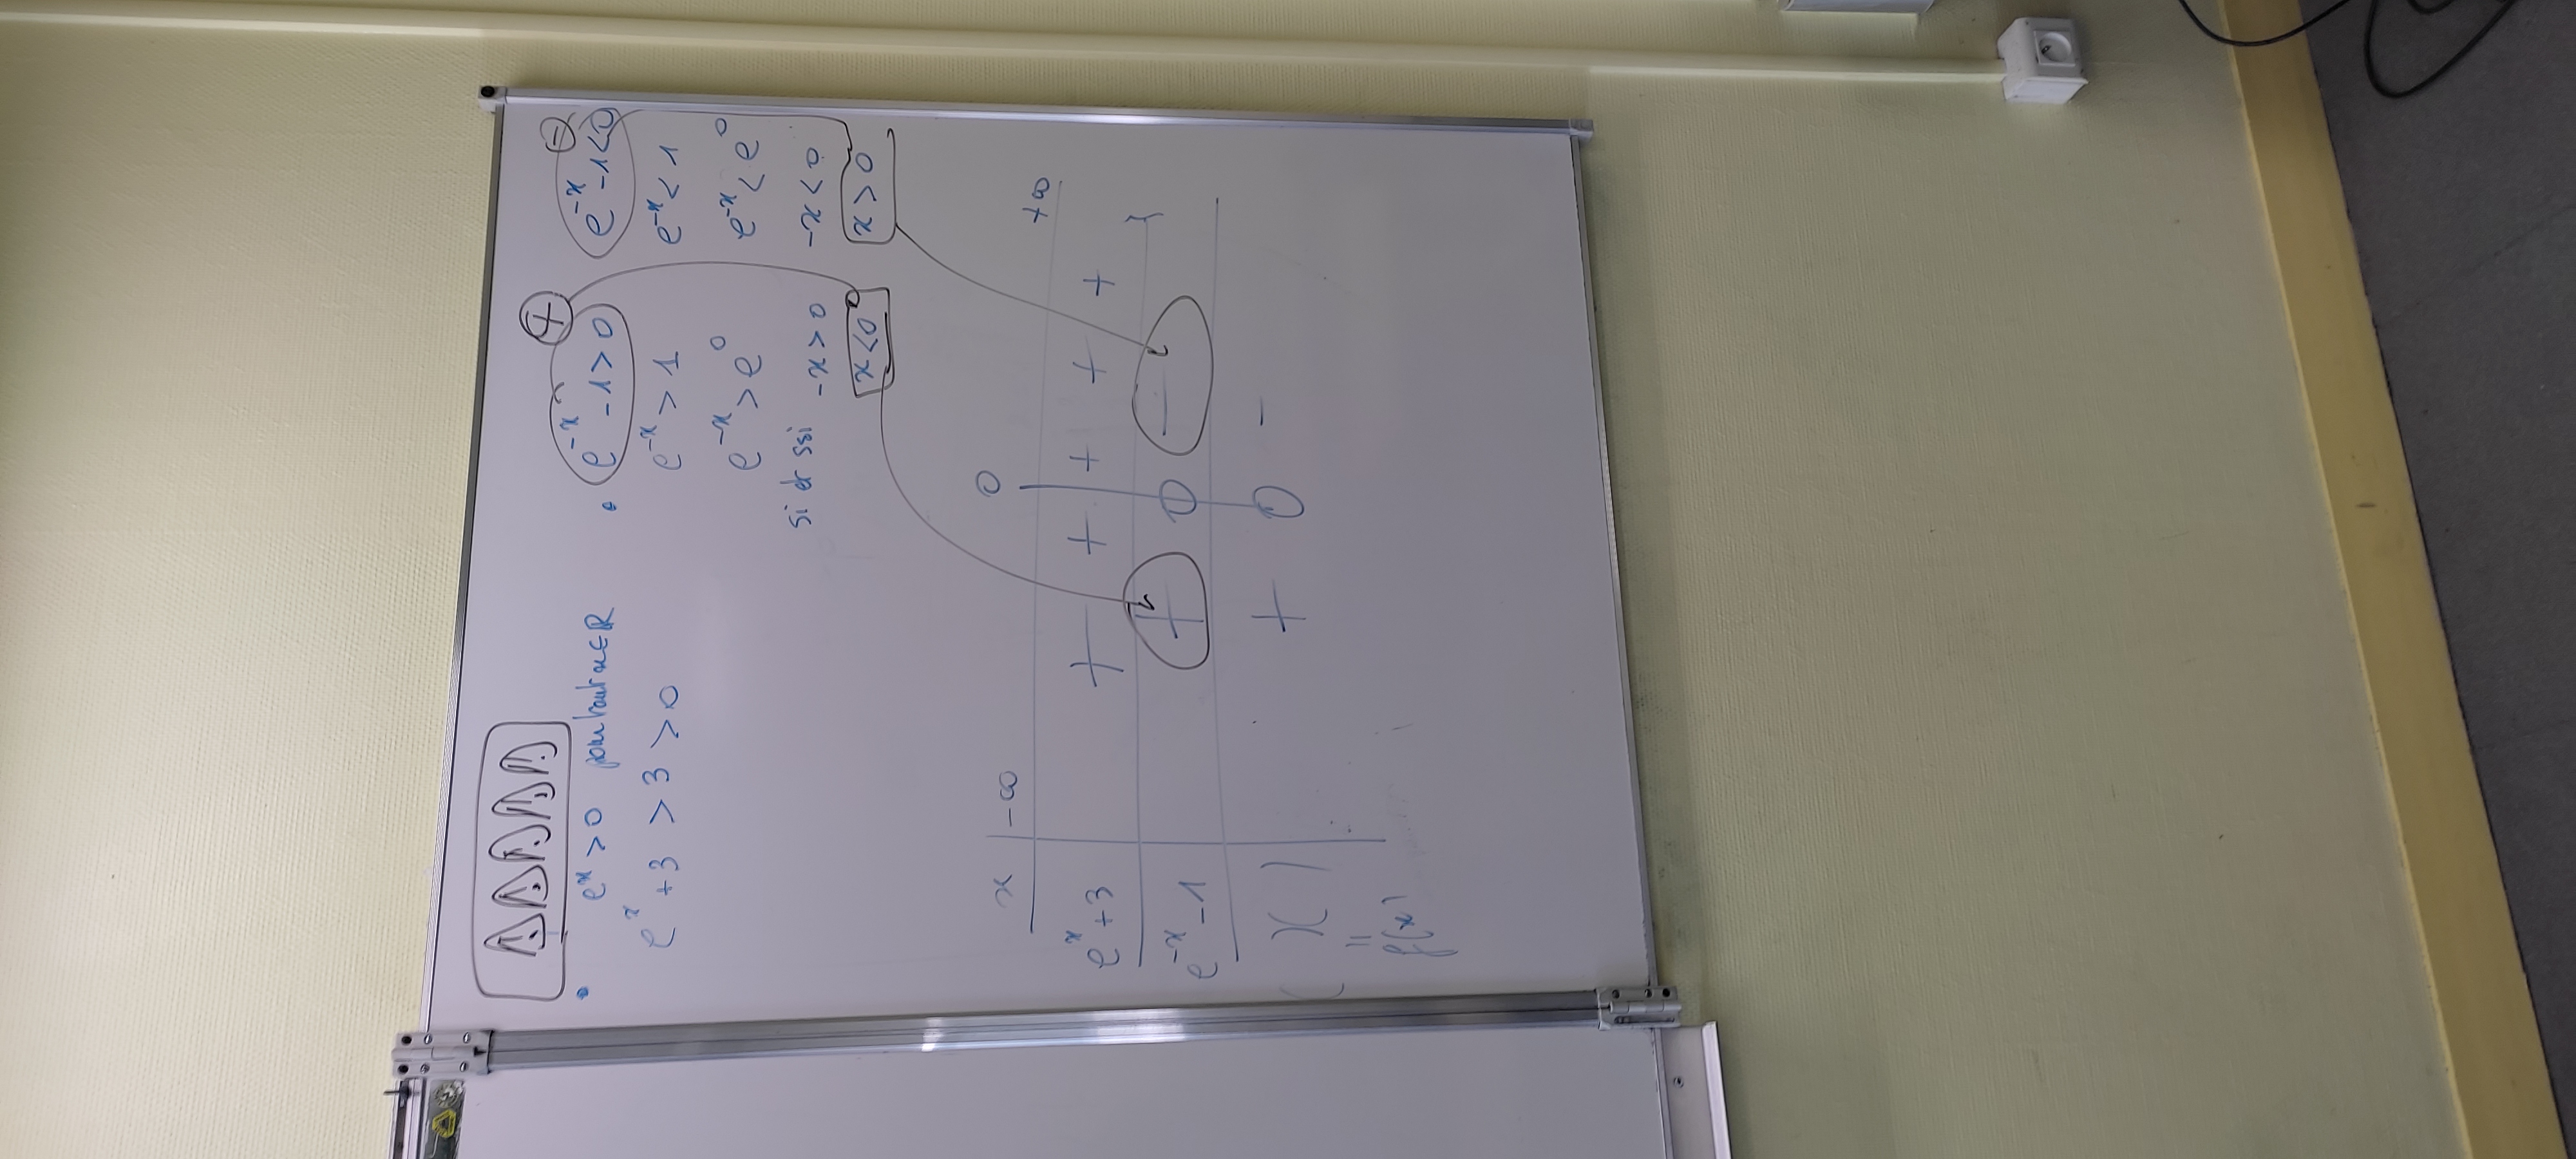 e^x > 0 pour tout x ∈ ℝ
e^x + 3 > 3 > 0
+
e^-x - 1 > 0
e^-x > 1
e^-x > e^0
si et ssi -x > 0
x < 0
-
e^-x - 1 < 0
e^-x < 1
e^-x < e^0
-x < 0
x > 0
x -∞ 0 +∞
e^x + 3 + + + + +
e^-x - 1 + 0 -
( )( ) + 0 -
=
f(x)